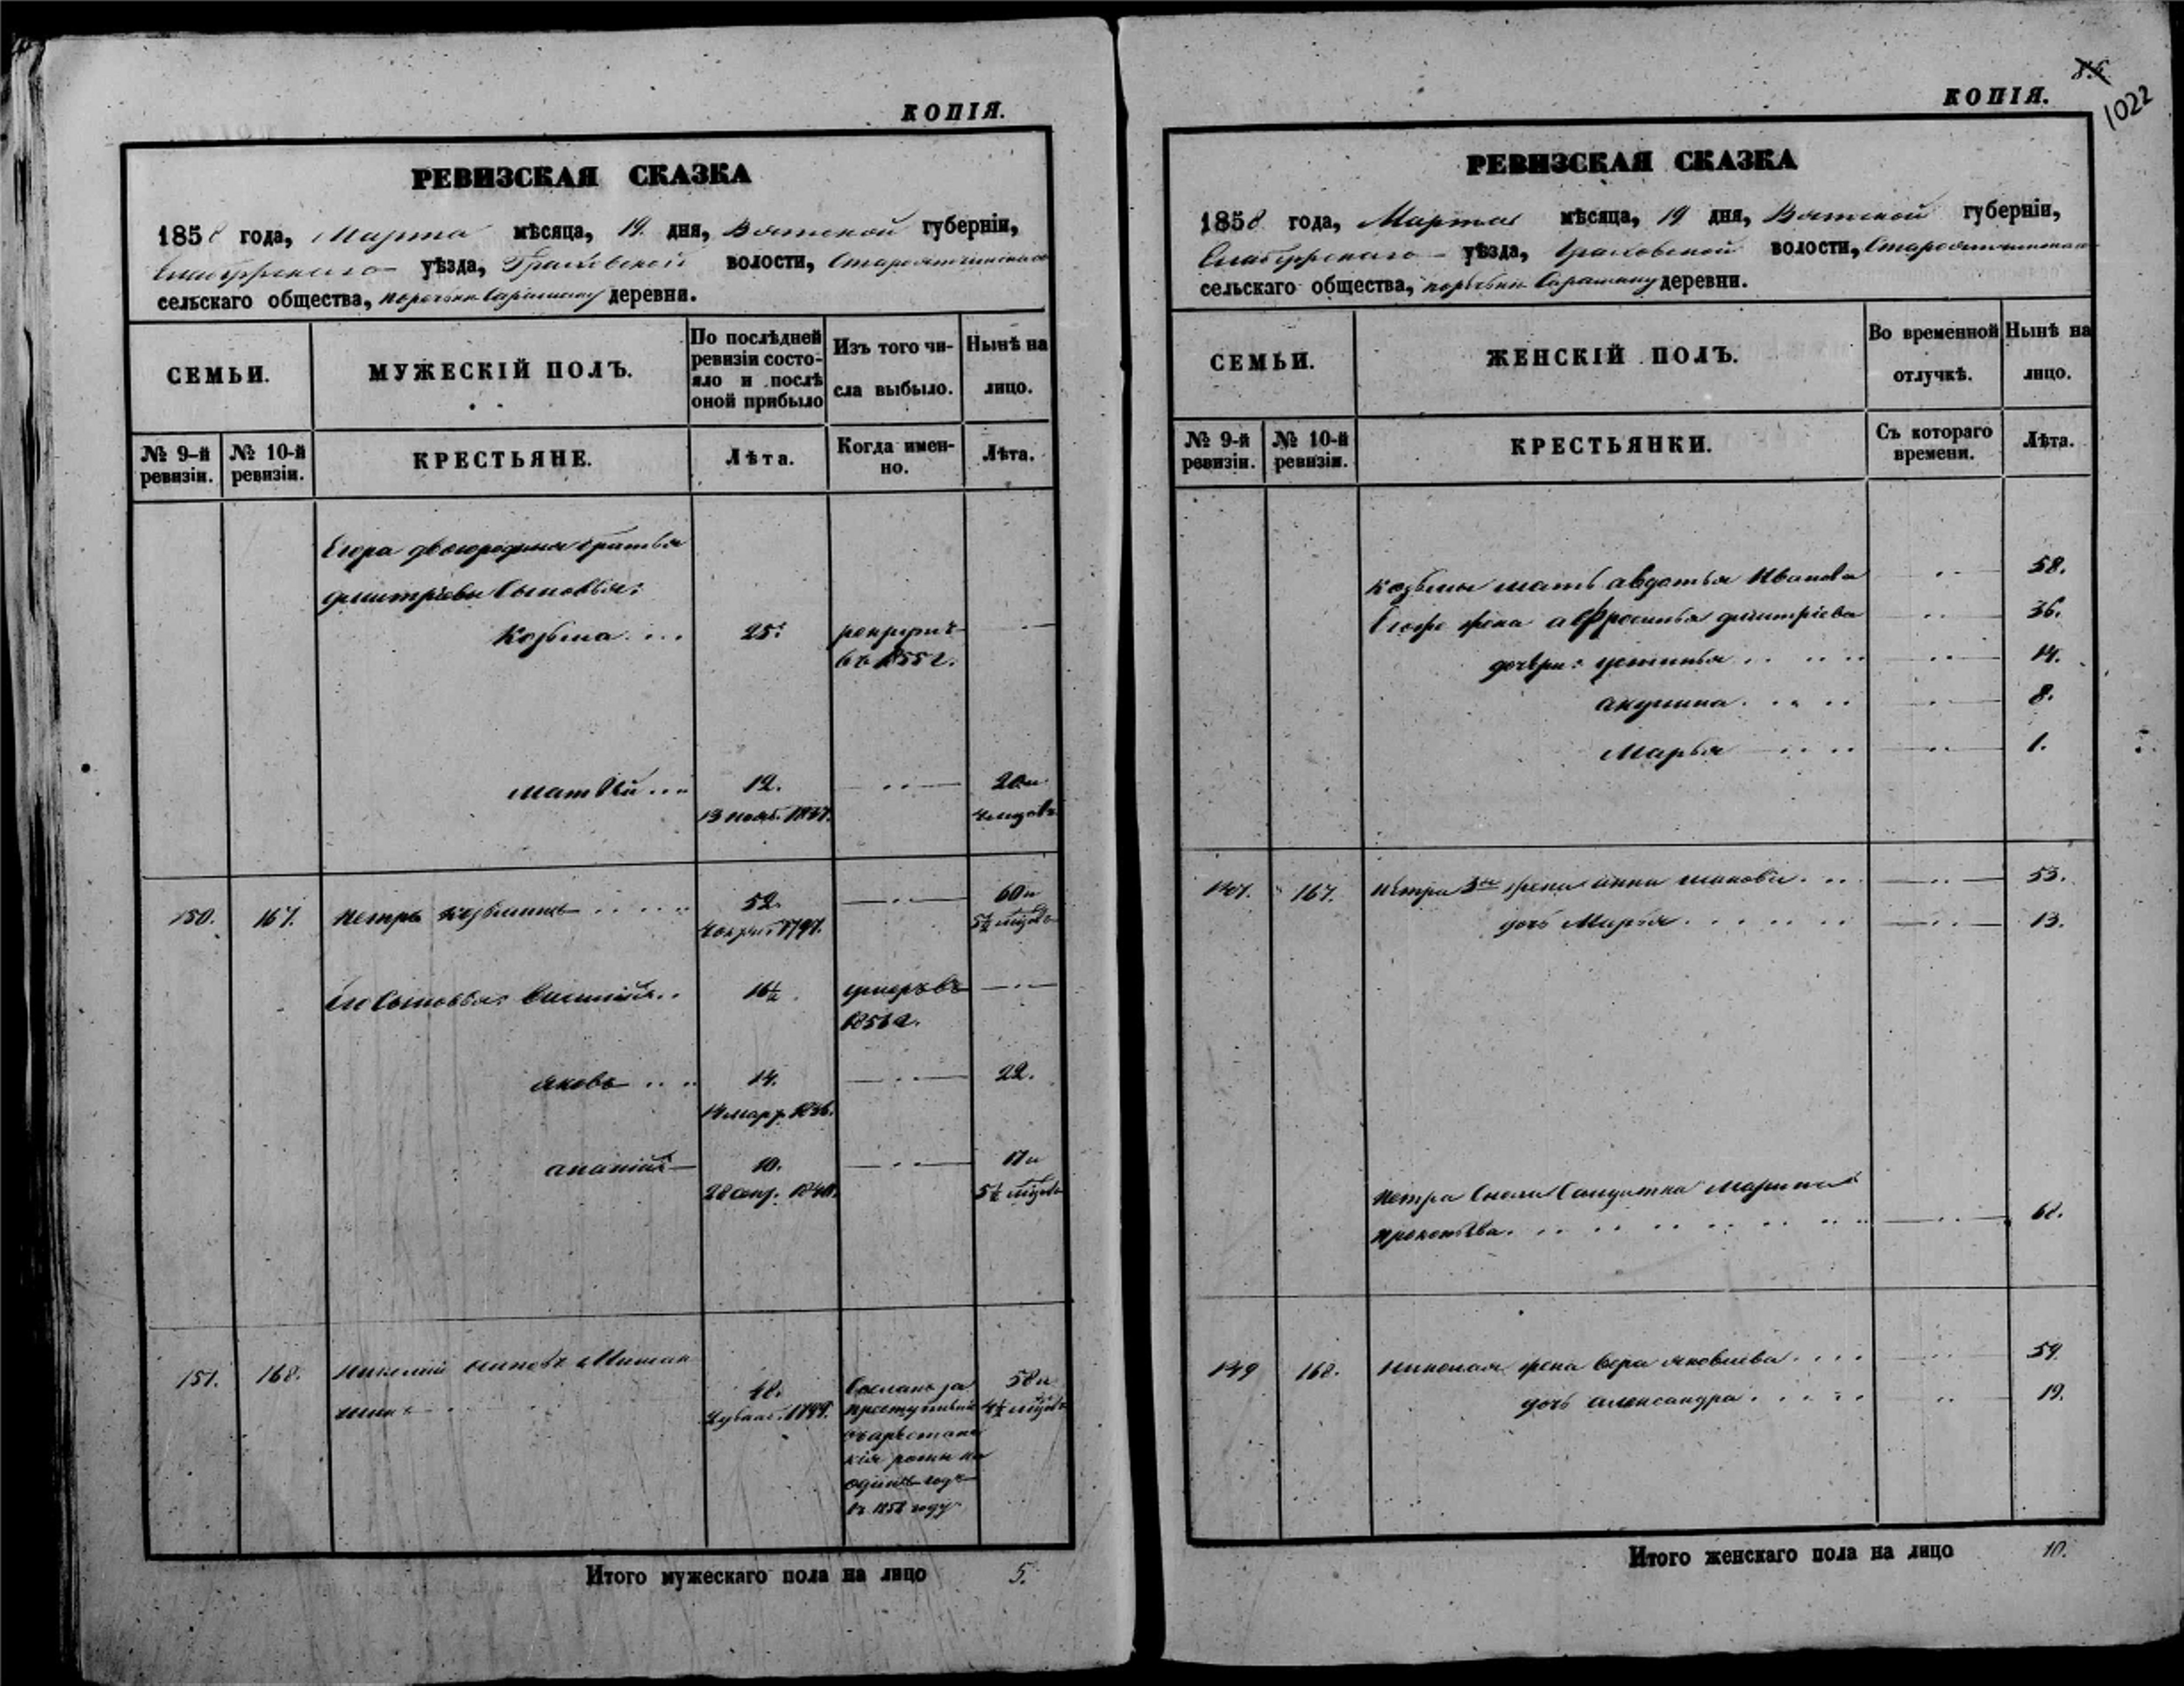 КОПІЯ.
РЕВИЗСКАЯ СКАЗКА
185 года, Марта мѣсяца, 19. дня, Вятской губерніи,
Елабужскаго уѣзда, Граховской волости,
сельскаго общества, деревни.
СЕМЬИ.
МУЖЕСКІЙ ПОЛЪ.
По послѣдней ревизіи состо-
яло и послѣ
оной прибыло
Изъ того чи-
сла выбыло.
Нынѣ на
лицо.
№ 9-й ревизіи.
№ 10-й ревизіи.
КРЕСТЬЯНЕ.
Лѣта.
Когда имен-
но.
Лѣта.
Егора двоюродныя братья
Дмитріевы сыновья:
Козьма 25. рекрутъ
въ 1855 г.
Матвѣй 12. 20 и
13 нояб. 1837.
150. 167. Петръ Козьминъ 52. 60 и
1797. 5½
Его сыновья: 16½ умеръ въ
185 г.
Яковъ 14. 22.
14 мар. 1836.
Ананій 10. 17 и
28 сент. 1840. 5½
151. 168. Николай Осиповъ
48. Сосланъ за 58 и
1799. 4½
въ арестант
кія роты на
одинъ годъ
въ 1858 году
Итого мужескаго пола на лицо 5.
1022
КОПІЯ.
РЕВИЗСКАЯ СКАЗКА
1858 года, Марта мѣсяца, 19 дня, Вятской губерніи,
Елабужскаго уѣзда, Граховской волости,
сельскаго общества, деревни.
СЕМЬИ.
ЖЕНСКІЙ ПОЛЪ.
Во временной
отлучкѣ.
Нынѣ на
лицо.
№ 9-й ревизіи.
№ 10-й ревизіи.
КРЕСТЬЯНКИ.
Съ котораго
времени.
Лѣта.
Козьмы мать Авдотья Иванова 58.
жена Афросинья Дмитріева 36.
дочери: Устинья 14.
Акулина 8.
Марья 1.
167. Петра 3я жена Анна 53.
дочь Марья 13.
Петра Марина
Прокопьева. 68.
149 168. Николая жена Вера Яковлева 59.
дочь Александра 19.
Итого женскаго пола на лицо 10.